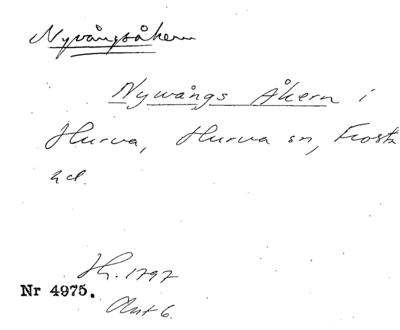 Nyvångsåkern
Nywångs Åkern i
Hurva, Hurva sn, Frosta
hd.
1797
Nr 4975.
Akt 6.